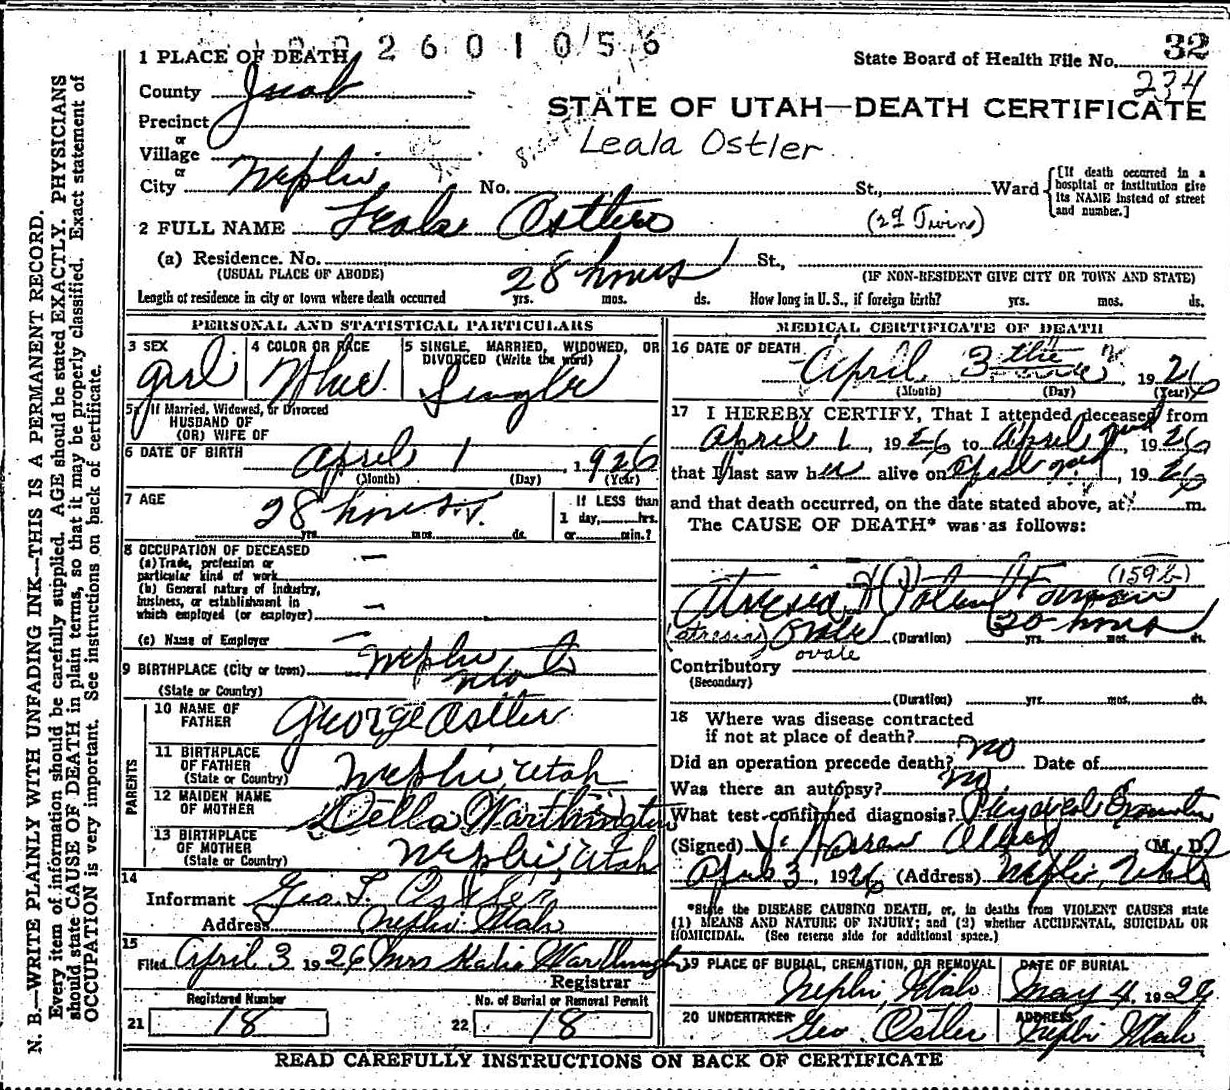 2 6 0 1 0 5 6
1 PLACE OF DEATH
State Board of Health File No. 32
234
County Juab
STATE OF UTAH—DEATH CERTIFICATE
Precinct
or
Leala Ostler
Village
or
City Nephi No. St., Ward
[If death occurred in a hospital or institution give its NAME instead of street and number.]
2 FULL NAME Leala Ostler (2d Twin)
(a) Residence. No. St.,
(USUAL PLACE OF ABODE) 28 hours (IF NON-RESIDENT GIVE CITY OR TOWN AND STATE)
Length of residence in city or town where death occurred yrs. mos. ds. How long in U.S., if foreign birth? yrs. mos. ds.
PERSONAL AND STATISTICAL PARTICULARS
3 SEX 4 COLOR OR RACE 5 SINGLE, MARRIED, WIDOWED, OR DIVORCED (Write the word)
girl White Single
5a If Married, Widowed, or Divorced
HUSBAND OF
(OR) WIFE OF
6 DATE OF BIRTH April 1 1926
(Month) (Day) (Year)
7 AGE 28 hours
yrs. mos. ds.
If LESS than
1 day, hrs.
or min.?
8 OCCUPATION OF DECEASED
(a) Trade, profession or
particular kind of work
(b) General nature of Industry,
business, or establishment in
which employed (or employer)
(c) Name of Employer
9 BIRTHPLACE (City or town) Nephi
(State or Country) Utah
PARENTS
10 NAME OF FATHER George Ostler
11 BIRTHPLACE OF FATHER (State or Country) Nephi, Utah
12 MAIDEN NAME OF MOTHER Della Warthington
13 BIRTHPLACE OF MOTHER (State or Country) Nephi, Utah
14
Informant Geo. T. Ostler
Address Nephi Utah
15
Filed April 3 1926 Mrs Katie Warthington
Registrar
Registered Number No. of Burial or Removal Permit
21 18 22 18
MEDICAL CERTIFICATE OF DEATH
16 DATE OF DEATH April 3 1926
(Month) (Day) (Year)
17 I HEREBY CERTIFY, That I attended deceased from
April 1, 1926 to April 2nd, 1926
that I last saw her alive on April 2nd, 1926
and that death occurred, on the date stated above, at m.
The CAUSE OF DEATH* was as follows:
(159b)
Atresia & Patent Foramen
(atresia) Ovale (Duration) yrs. mos. ds. 30 hours
ovale
Contributory
(Secondary)
(Duration) yrs. mos. ds.
18 Where was disease contracted
if not at place of death?
Did an operation precede death? no Date of
Was there an autopsy? no
What test confirmed diagnosis? Physical
(Signed) (M. D.)
April 3, 1926 (Address) Nephi, Utah
*State the DISEASE CAUSING DEATH, or, in deaths from VIOLENT CAUSES state
(1) MEANS AND NATURE OF INJURY; and (2) whether ACCIDENTAL, SUICIDAL OR
HOMICIDAL. (See reverse side for additional space.)
19 PLACE OF BURIAL, CREMATION, OR REMOVAL DATE OF BURIAL
Nephi, Utah May 4 1926
20 UNDERTAKER ADDRESS
Geo. Ostler Nephi Utah
READ CAREFULLY INSTRUCTIONS ON BACK OF CERTIFICATE
N. B.—WRITE PLAINLY WITH UNFADING INK—THIS IS A PERMANENT RECORD.
Every item of information should be carefully supplied. AGE should be stated EXACTLY. PHYSICIANS
should state CAUSE OF DEATH in plain terms, so that it may be properly classified. Exact statement of
OCCUPATION is very important. See instructions on back of certificate.